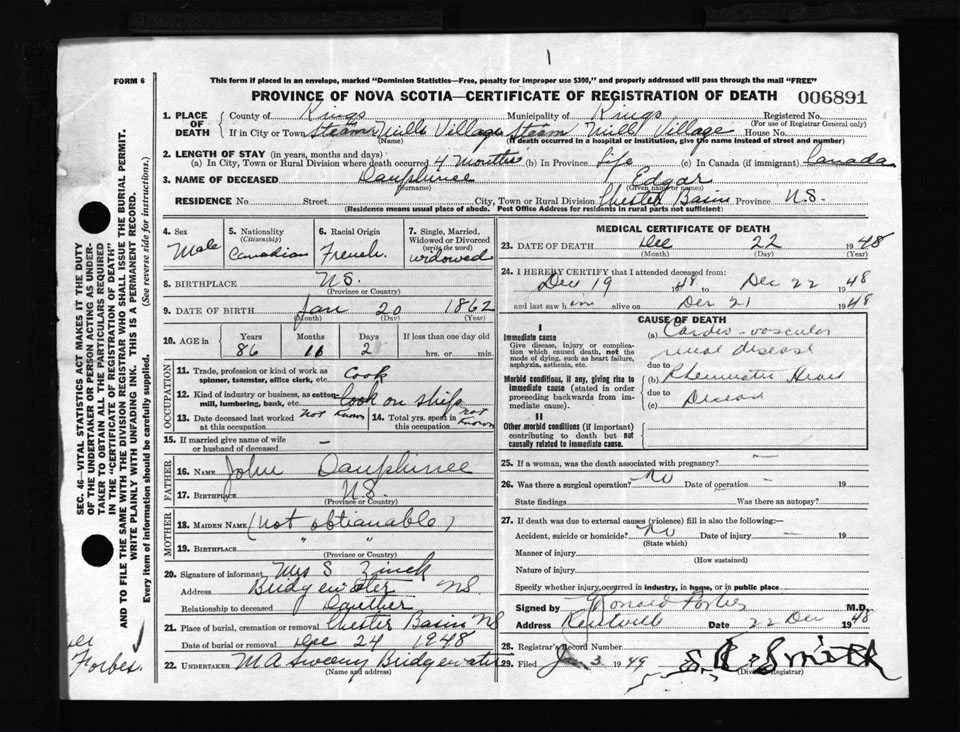 1
FORM 6
This form if placed in an envelope, marked "Dominion Statistics—Free, penalty for improper use $300," and properly addressed will pass through the mail "FREE"
PROVINCE OF NOVA SCOTIA—CERTIFICATE OF REGISTRATION OF DEATH 006891
1. PLACE OF DEATH
County of Kings Municipality of Kings Registered No.
(For use of Registrar General only)
If in City or Town Steam Mills Village Steam Mills Village House No.
(Name) (If death occurred in a hospital or institution, give the name instead of street and number)
2. LENGTH OF STAY (in years, months and days)
(a) In City, Town or Rural Division where death occurred 4 Months (b) In Province Life (c) In Canada (if immigrant) Canada
3. NAME OF DECEASED Dauphinee Edgar
(Surname) (Given name or names)
RESIDENCE No. Street City, Town or Rural Division Chester Basin Province N.S.
(Residence means usual place of abode. Post Office Address for residents in rural parts not sufficient)
4. Sex Male
5. Nationality (Citizenship) Canadian
6. Racial Origin French.
7. Single, Married, Widowed or Divorced (write the word) widowed
8. BIRTHPLACE N.S.
(Province or Country)
9. DATE OF BIRTH Jan 20 1862
(Month) (Day) (Year)
10. AGE in Years Months Days If less than one day old
86 11 2 hrs. or min.
OCCUPATION
11. Trade, profession or kind of work as spinner, teamster, office clerk, etc. Cook
12. Kind of industry or business, as cotton-mill, lumbering, bank, etc. Cook on ship
13. Date deceased last worked at this occupation Not Known
14. Total yrs. spent in this occupation Not Known
15. If married give name of wife or husband of deceased —
FATHER
16. NAME John Dauphinee
17. BIRTHPLACE N.S.
(Province or Country)
MOTHER
18. MAIDEN NAME (Not obtianable)
19. BIRTHPLACE " "
(Province or Country)
20. Signature of informant Mrs S Zinck
Address Bridgewater NS.
Relationship to deceased Dauther
21. Place of burial, cremation or removal Chester Basin NS
Date of burial or removal Dec 24 1948
22. UNDERTAKER M A Sweeny Bridgewater
(Name and address)
MEDICAL CERTIFICATE OF DEATH
23. DATE OF DEATH Dec 22 1948
(Month) (Day) (Year)
24. I HEREBY CERTIFY that I attended deceased from:
Dec 19 1948 Dec 22 1948
and last saw h im alive on Dec 21 1948
CAUSE OF DEATH
I
Immediate cause
Give disease, injury or complication which caused death, not the mode of dying, such as heart failure, asphyxia, asthenia, etc.
(a) Cardio-vascular
renal disease
due to
Morbid conditions, if any, giving rise to immediate cause (stated in order proceeding backwards from immediate cause).
(b) Rheumatic Heart
due to Disease
(c)
II
Other morbid conditions (if important) contributing to death but not causally related to immediate cause.
25. If a woman, was the death associated with pregnancy? —
26. Was there a surgical operation? No Date of operation —
State findings Was there an autopsy?
27. If death was due to external causes (violence) fill in also the following:—
Accident, suicide or homicide? No Date of injury — 19
(State which)
Manner of injury
(How sustained)
Nature of injury
Specify whether injury occurred in industry, in home, or in public place
Signed by M.D.
Address Kentville Date 22 Dec 1948
28. Registrar's Record Number
29. Filed Jan 3 1949 Smith
(Division Registrar)
SEC. 46—VITAL STATISTICS ACT MAKES IT THE DUTY
OF THE UNDERTAKER OR PERSON ACTING AS UNDER-
TAKER TO OBTAIN ALL THE PARTICULARS REQUIRED
IN THE "CERTIFICATE OF REGISTRATION OF DEATH"
AND TO FILE THE SAME WITH THE DIVISION REGISTRAR WHO SHALL ISSUE THE BURIAL PERMIT.
WRITE PLAINLY WITH UNFADING INK. THIS IS A PERMANENT RECORD.
Every item of information should be carefully supplied. (See reverse side for instructions.)
Forbes.